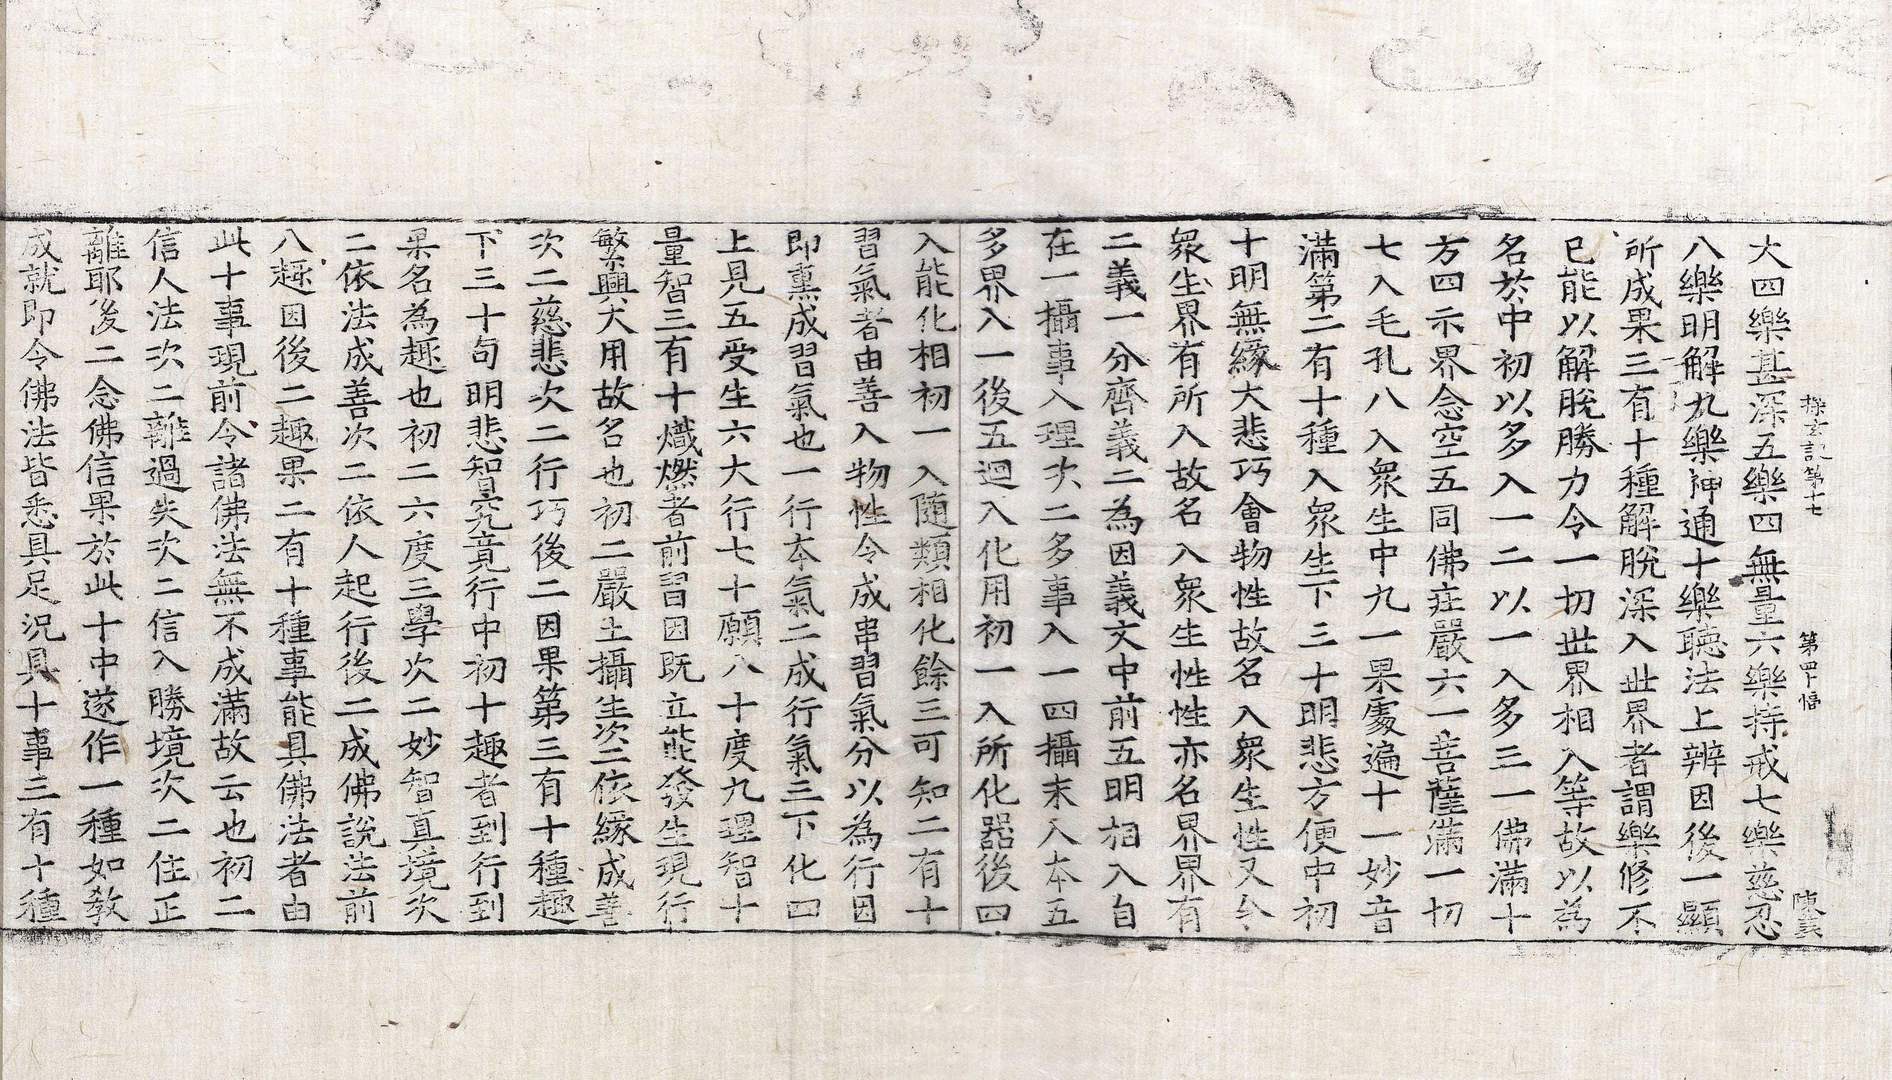 探玄記第十七 第四十幅 陳玄
大四樂甚深五樂四無量六樂持戒七樂慈忍
八樂明解九樂神通十樂聽法上辨因後一顯
所成果三有十種解脫深入世界者謂樂修不
已能以解脫勝力令一切世界相入等故以為
名於中初以多入一二以一入多三一佛滿十
方四示界念空五同佛莊嚴六一菩薩滿一切
七入毛孔八入衆生中九一果處遍十一妙音
滿第二有十種入衆生下三十明悲方便中初
十明無緣大悲巧會物性故名入衆生性又令
衆生界有所入故名入衆生性性亦名界界有
二義一分齊義二為因義文中前五明相入自
在一攝事入理次二多事入一四攝末入本五
多界入一後五迴入化用初一入所化器後四
入能化相初一入隨類相化餘三可知二有十
習氣者由善入物性令成串習氣分以為行因
即熏成習氣也一行本氣二成行氣三下化四
上見五受生六大行七十願八十度九理智十
量智三有十熾燃者前習因既立能發生現行
繁興大用故名也初二嚴土攝生次二依緣成善
次二慈悲次二行巧後二因果第三有十種趣
下三十句明悲智究竟行中初十趣者到行到
果名為趣也初二六度三學次二妙智真境次
二依法成善次二依人起行後二成佛說法前
八趣因後二趣果二有十種事能具佛法者由
此十事現前令諸佛法無不成滿故云也初二
信人法次二離過失次二信入勝境次二住正
離耶後二念佛信果於此十中遂作一種如教
成就即令佛法皆悉具足況具十事三有十種